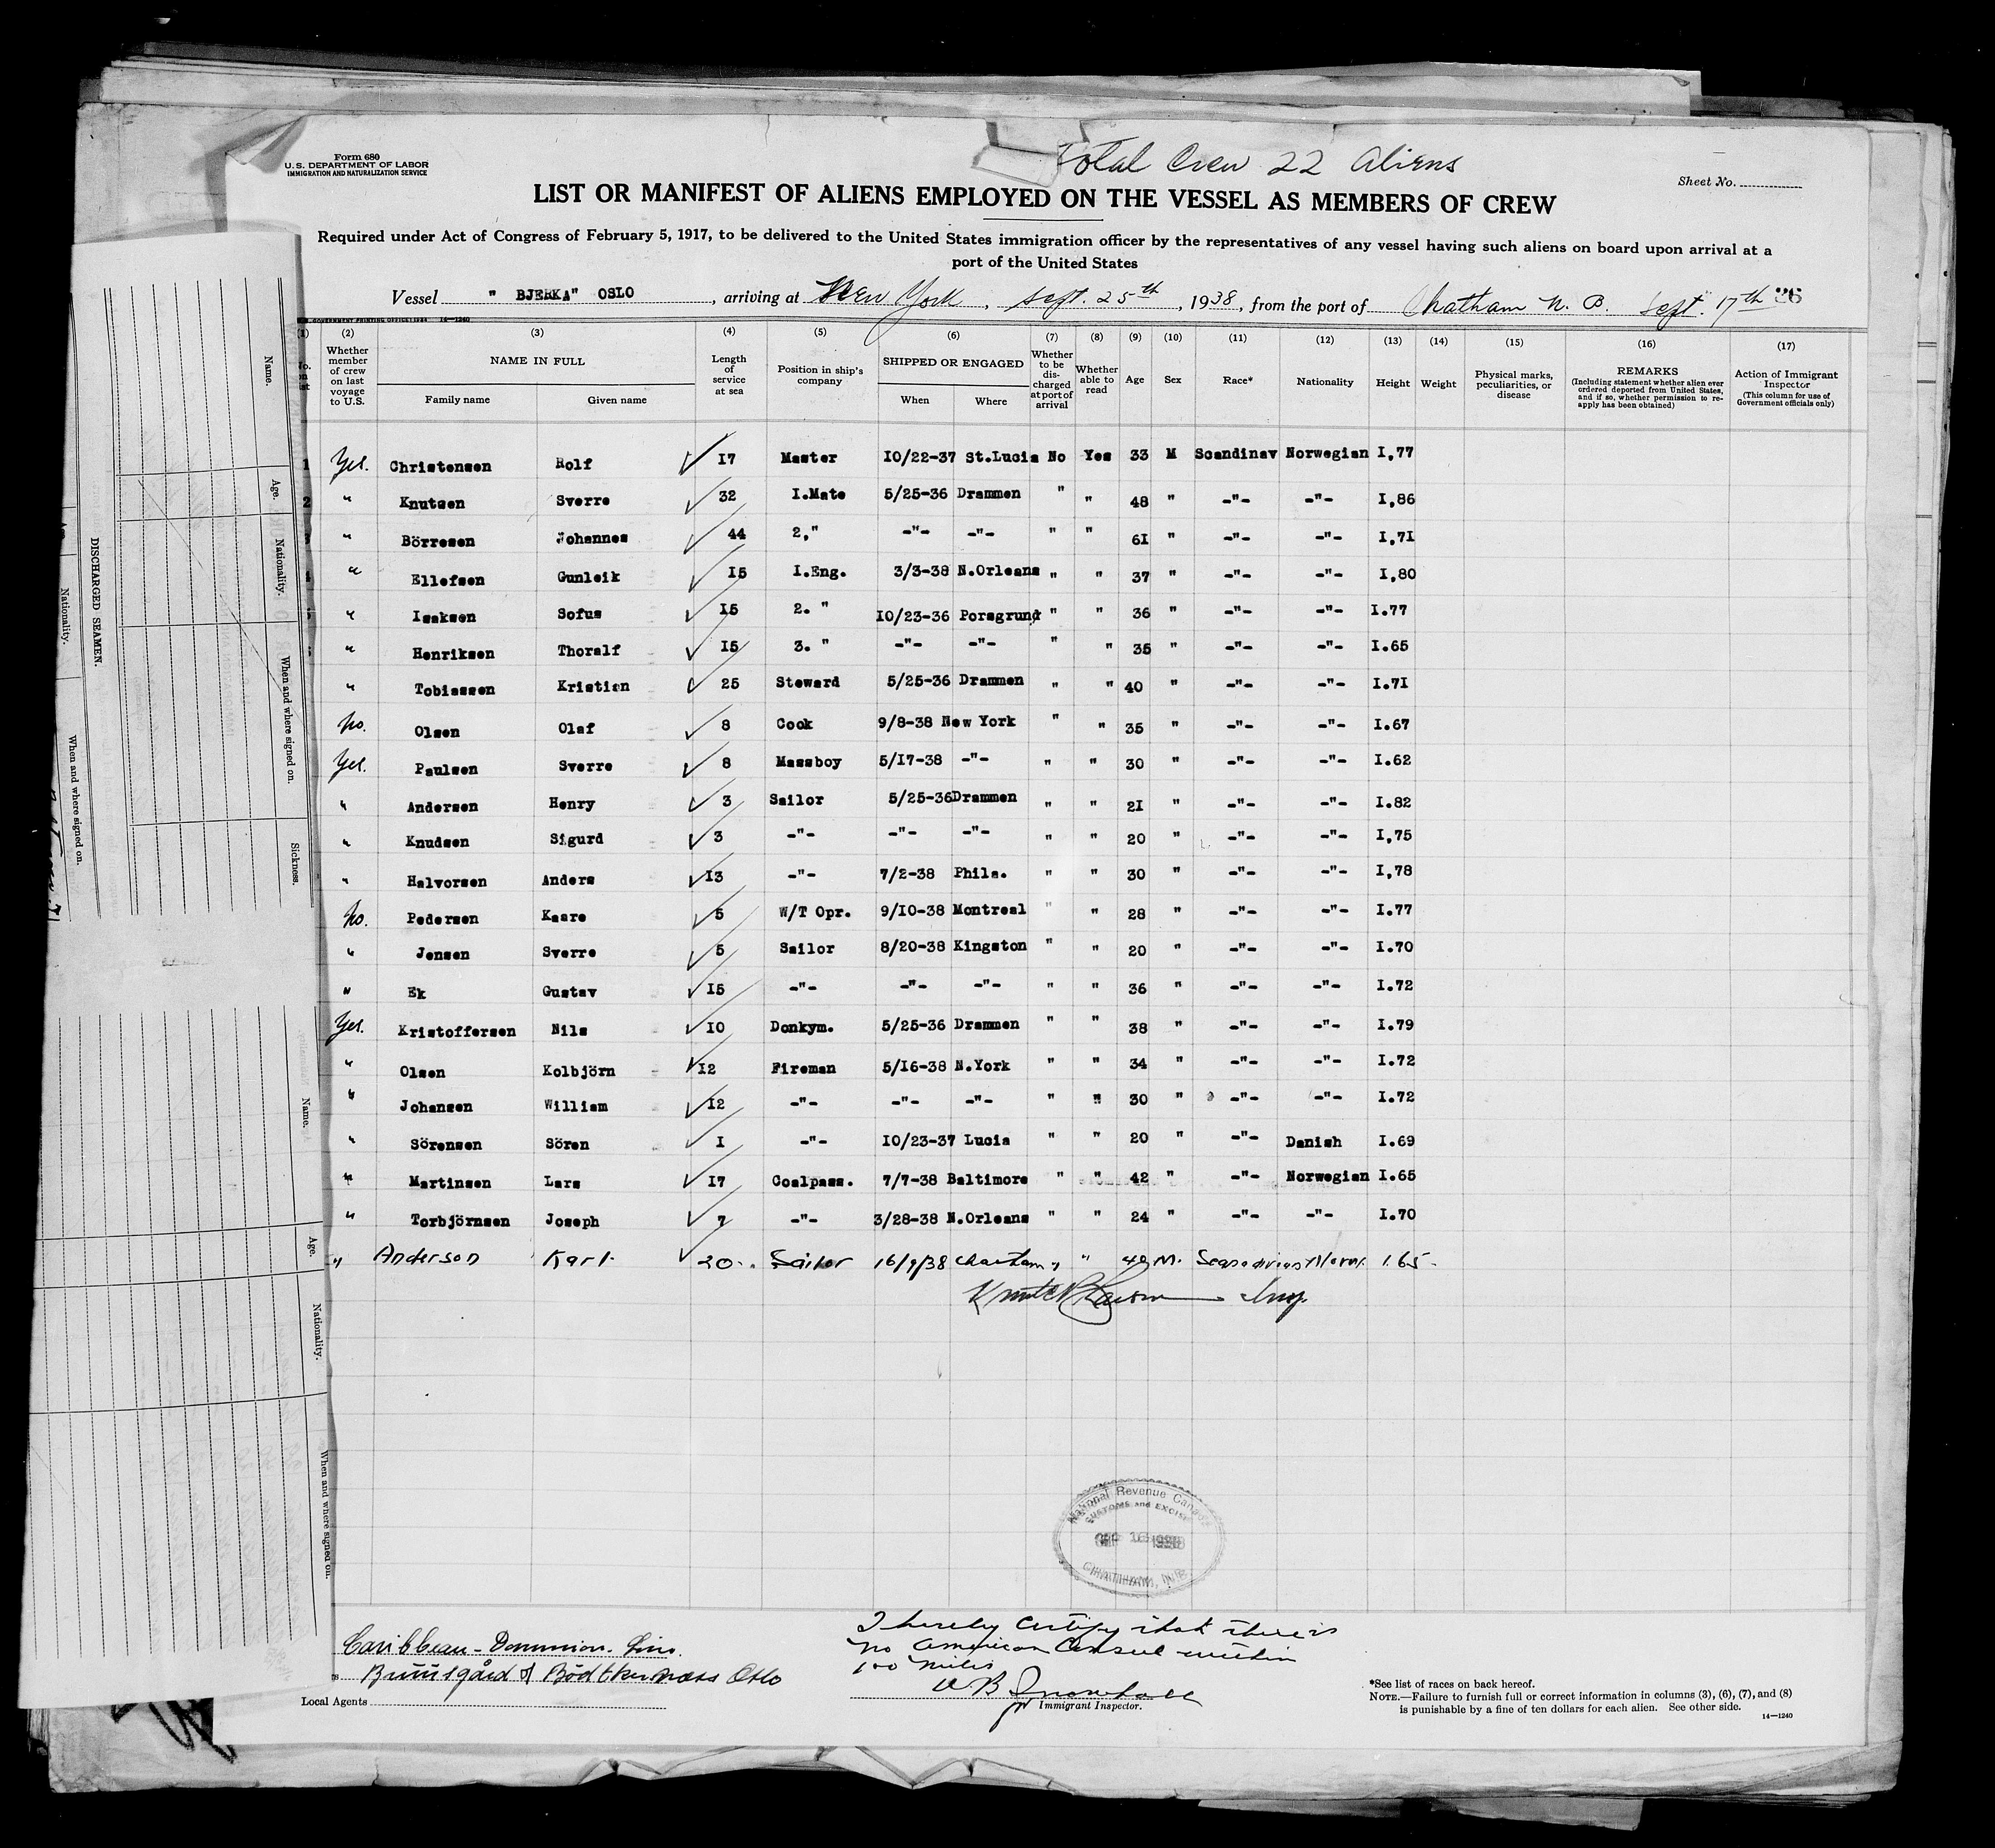 Form 680
U. S. DEPARTMENT OF LABOR
IMMIGRATION AND NATURALIZATION SERVICE
Total Crew 22 Aliens
Sheet No.
LIST OR MANIFEST OF ALIENS EMPLOYED ON THE VESSEL AS MEMBERS OF CREW
Required under Act of Congress of February 5, 1917, to be delivered to the United States immigration officer by the representatives of any vessel having such aliens on board upon arrival at a
port of the United States
Vessel " BJERKA" OSLO, arriving at New York, Sept. 25th, 1938, from the port of Chatham N. B. Sept. 17th 26
GOVERNMENT PRINTING OFFICE 14—1240
(1) (2) (3) (4) (5) (6) (7) (8) (9) (10) (11) (12) (13) (14) (15) (16) (17)
Whether member of crew on last voyage to U.S.
NAME IN FULL
Family name
Given name
Length of service at sea
Position in ship's company
SHIPPED OR ENGAGED
When
Where
Whether to be discharged at port of arrival
Whether able to read
Age
Sex
Race*
Nationality
Height
Weight
Physical marks, peculiarities, or disease
REMARKS
(Including statement whether alien ever ordered deported from United States, and if so, whether permission to reapply has been obtained)
Action of Immigrant Inspector
(This column for use of Government officials only)
1 Yes. Christensen Rolf 17 Master 10/22-37 St.Lucia No Yes 33 M Scandinav Norwegian I,77
2 " Knutsen Sverre 32 I.Mate 5/25-36 Drammen " " 48 " -"- -"- I,86
" Börresen Johannes 44 2," -"- -"- " " 61 " -"- -"- I,71
" Ellefsen Gunleik 15 I.Eng. 3/3-38 N.Orleans " " 37 " -"- -"- I,80
" Isaksen Sofus 15 2. " 10/23-36 Porsgrund " " 36 " -"- -"- I.77
" Henriksen Thoralf 15 3. " -"- -"- " " 35 " -"- -"- I.65
" Tobiassen Kristian 25 Steward 5/25-36 Drammen " " 40 " -"- -"- I.71
No. Olsen Olaf 8 Cook 9/8-38 New York " " 35 " -"- -"- I.67
Yes. Paulsen Sverre 8 Messboy 5/17-38 -"- " " 30 " -"- -"- I.62
" Andersen Henry 3 Sailor 5/25-36 Drammen " " 21 " -"- -"- I.82
" Knudsen Sigurd 3 -"- -"- -"- " " 20 " -"- -"- I,75
" Halvorsen Anders 13 -"- 7/2-38 Phila. " " 30 " -"- -"- I,78
No. Pedersen Kaare 5 W/T Opr. 9/10-38 Montreal " " 28 " -"- -"- I.77
" Jensen Sverre 5 Sailor 8/20-38 Kingston " " 20 " -"- -"- I.70
" Ek Gustav 15 -"- -"- -"- " " 36 " -"- -"- I.72
Yes. Kristoffersen Nils 10 Donkym. 5/25-36 Drammen " " 38 " -"- -"- I.79
" Olsen Kolbjörn 12 Fireman 5/16-38 N.York " " 34 " -"- -"- I.72
" Johansen William 12 -"- -"- -"- " " 30 " -"- -"- I.72
" Sörensen Sören 1 -"- 10/23-37 Lucia " " 20 " -"- Danish I.69
" Martinsen Lars 17 Coalpass. 7/7-38 Baltimore " " 42 " -"- Norwegian I.65
" Torbjörnsen Joseph 7 -"- 3/28-38 N.Orleans " " 24 " -"- -"- I.70
" Anderson Karl 20 Sailor 16/9/38 Chatham " " M. 1.65
National Revenue Canada
CUSTOMS and EXCISE
CHATHAM, N.B.
Caribbean - Dominion Line.
Oslo
Local Agents
I hereby certify that there is
no American Consul within
100 miles
Immigrant Inspector.
*See list of races on back hereof.
NOTE.—Failure to furnish full or correct information in columns (3), (6), (7), and (8)
is punishable by a fine of ten dollars for each alien. See other side.
14—1240
Name.
Age.
Nationality.
When and where signed on.
Sickness.
DISCHARGED SEAMEN.
Nationality.
When and where signed on.
Name.
Age.
Nationality.
When and where signed on.